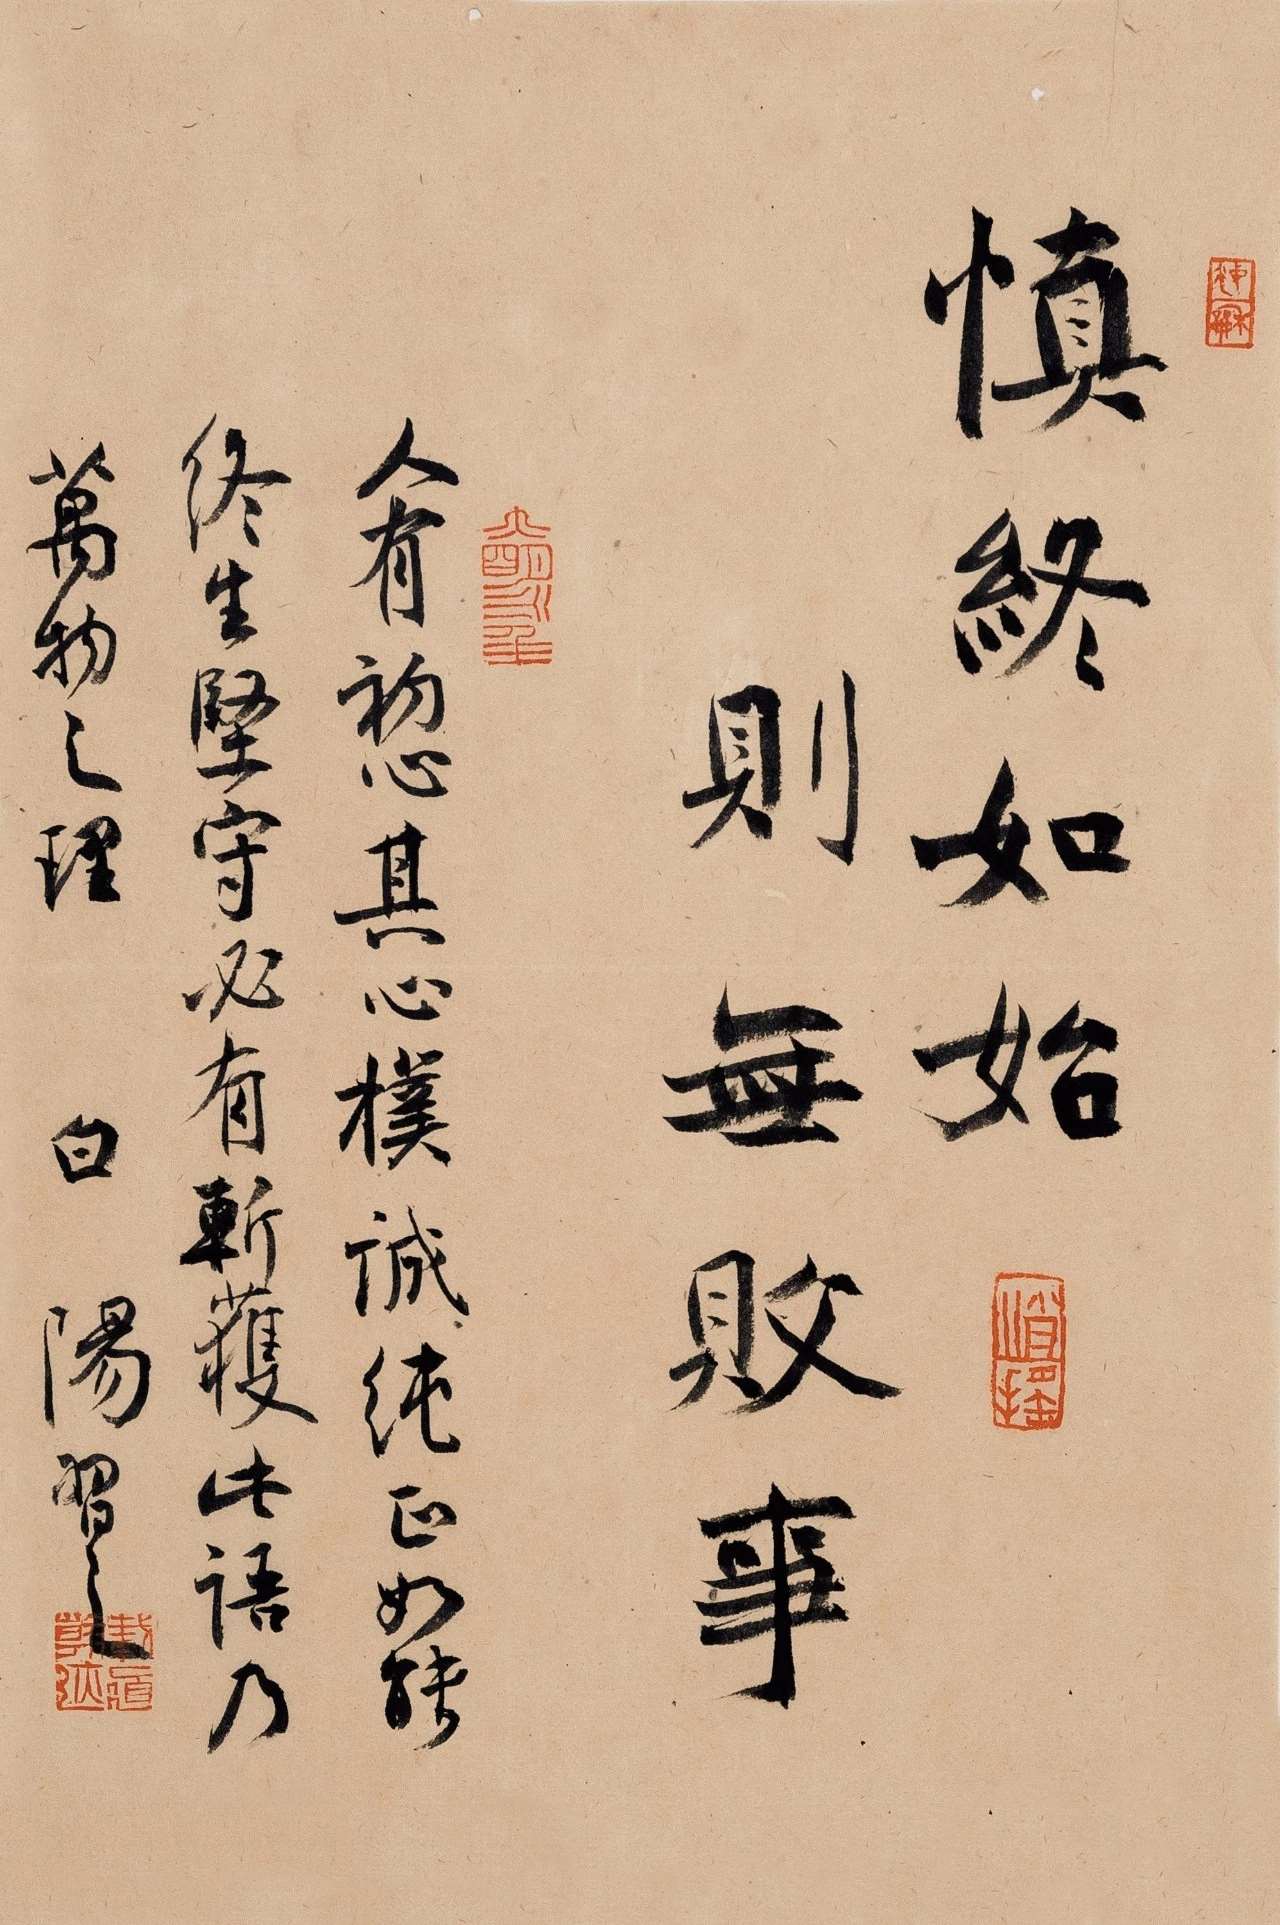 慎終如始
則無敗事
人有初心其心樸誠純正如能
終生堅守必有斬獲此語乃
萬物之理 白陽習之